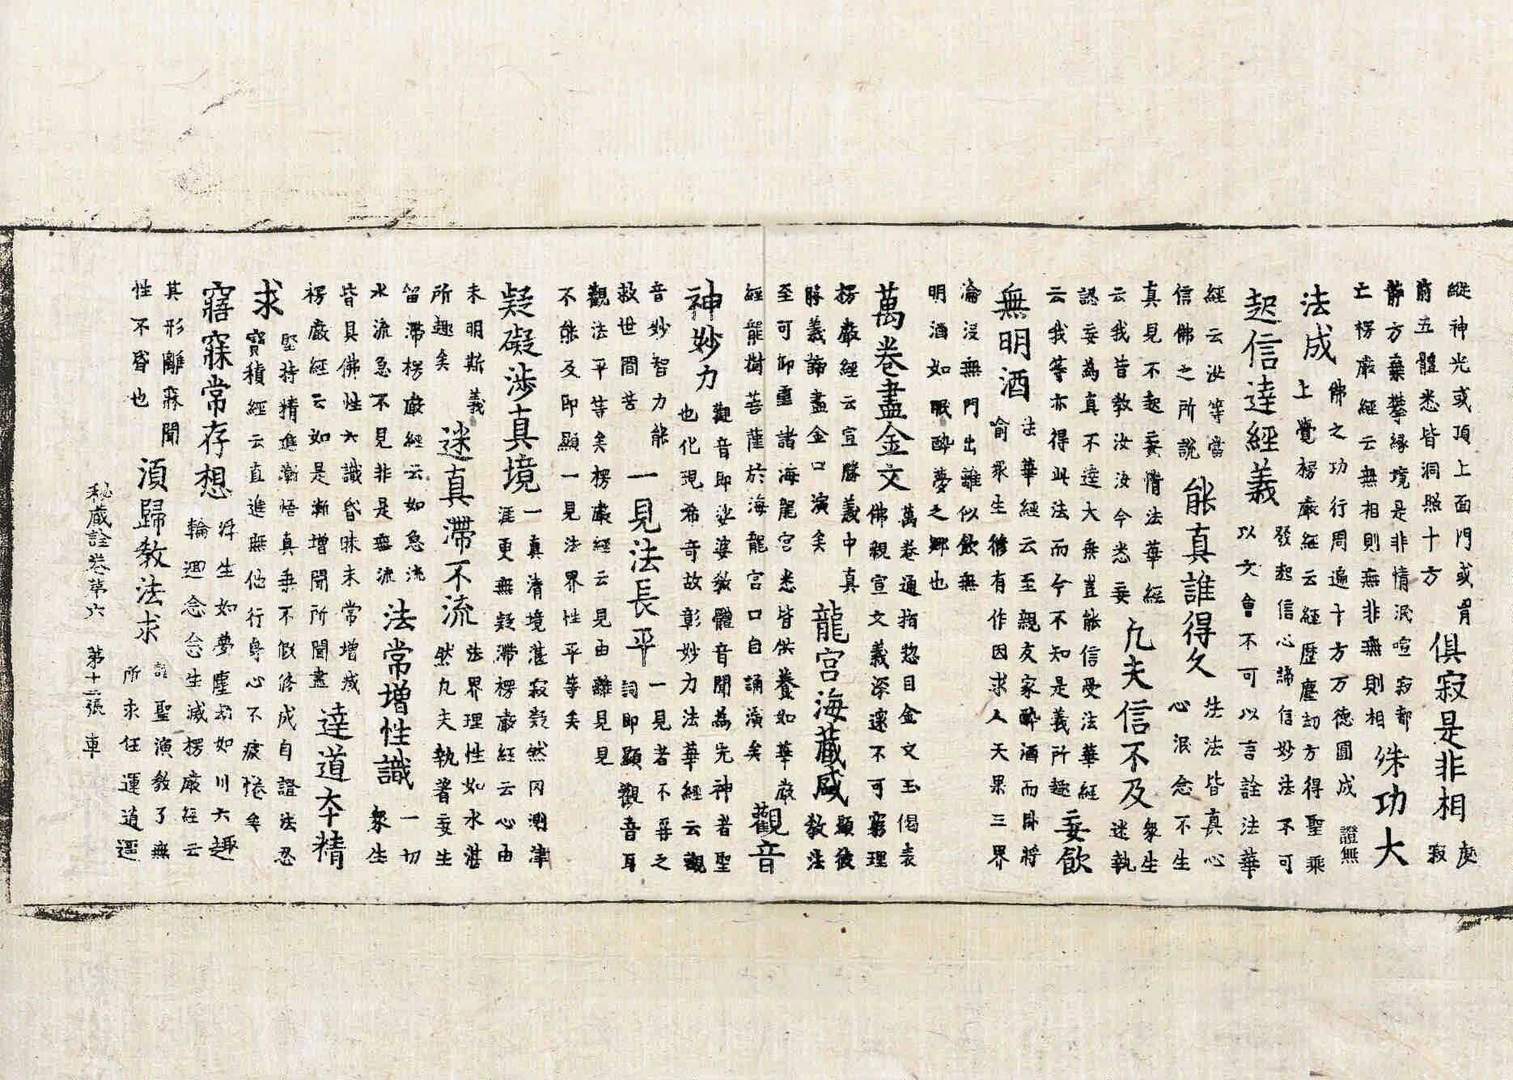 縱神光或頂上面門或胷
前五體悉皆洞照十方
俱寂是非相
處
寂
靜方棄攀緣境是非情泯喧寂都
亡楞嚴經云無相則無非無則相
殊功大
法成
佛之功行周遍十方万德圓成證無
上覺楞嚴經云經歷塵劫方得聖乘
起信達經義
發起信心諦信妙法不可
以文會不可以言詮法華
經云汝等當
信佛之所說
能真誰得久
法法皆真心
心泯念不生
真見不起妄情法華經
云我昔教汝汝今悉妄
凡夫信不及
衆生
迷執
認妄為真不達大乘豈能信受法華經
云我等亦得此法而今不知是義所趣
妄飲
無明酒
法華經云至親友家醉酒而卧將
喻衆生修有作因求人天果三界
淪沒無門出離似飲無
明酒如眠醉夢之鄉也
萬卷盡金文
萬卷通指惣目金文玉偈表
佛親宣文義深遠不可窮理
楞嚴經云宣勝義中真
勝義諦盡金口演矣
龍宮海藏咸
顯彼
教法
至可卸重諸海龍宮悉皆供養如華嚴
經龍樹菩薩於海龍宮口自誦演矣
觀音
神妙力
觀音即娑婆教體音聞為先神者聖
也化現希奇故彰妙力法華經云觀
音妙智力能
救世間苦
一見法長平
一見者不尋之
詞即顯觀音耳
觀法平等矣楞嚴經云見由離見見
不能及即顯一見法界性平等矣
疑礙涉真境
一真清境湛寂然冈測津
涯更無疑滯楞嚴經云心由
未明斯義
所趣矣
迷真滯不流
法界理性如水湛
然凡夫執著妄生
留滯楞嚴經云如急流
水流急不見非是無流
法常增性識
一切
衆生
皆具佛性六識昏昧未常增減
楞嚴經云如是漸增聞所聞盡
達道夲精
求
堅持精進漸悟真乘不假修成自證法忍
寶積經云直進無他行身心不疲惓矣
寤寐常存想
浮生如夢塵劫如川六趣
輪迴念念生滅楞嚴經云
其形離寐聞
性不昏也
須歸教法求
證聖演教了無
所求任運逍遙
秘藏詮卷第六 第十二張 車